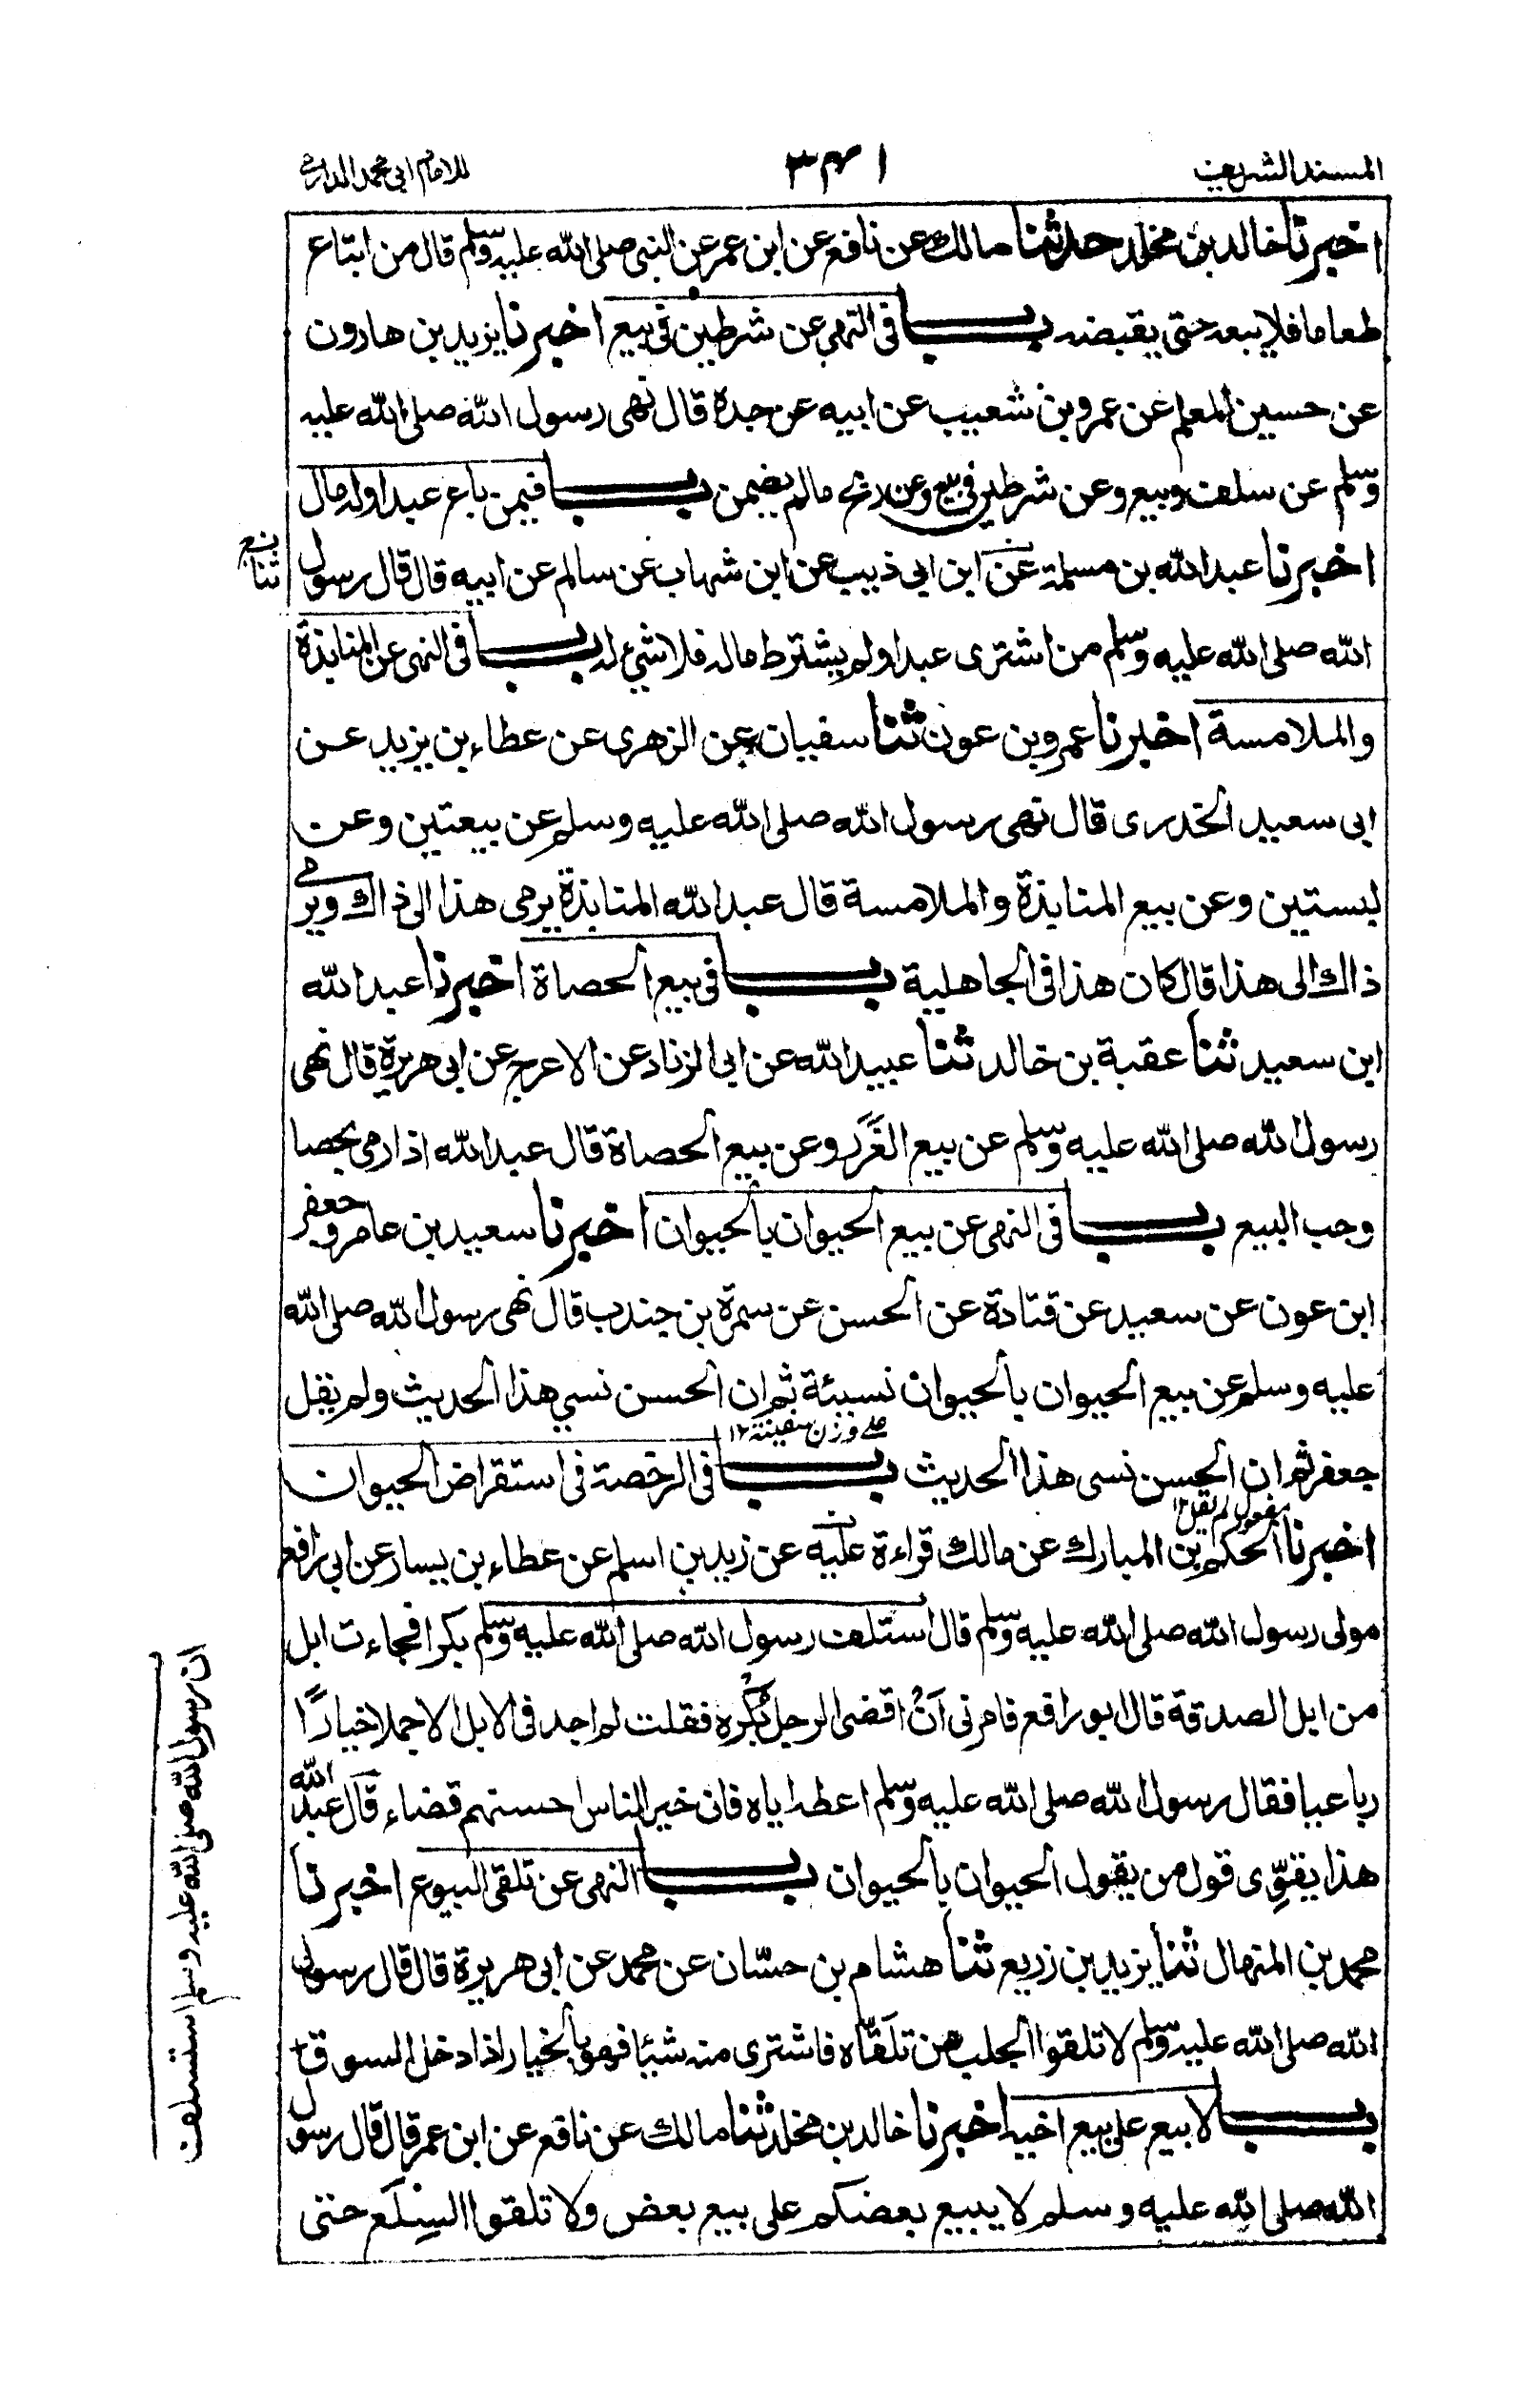 المسند الشريف ٣٤١ للامام ابى محمد الدارمى
اخبرنا خالد بن مخلد حدثنا مالك عن نافع عن ابن عمر عن النبى صلى الله عليه وسلم قال من ابتاع
طعاما فلا يبعه حتى يقبضه باب فى النهى عن شرطين فى بيع اخبرنا يزيد بن هارون
عن حسين المعلم عن عمرو بن شعيب عن ابيه عن جده قال نهى رسول الله صلى الله عليه
وسلم عن سلف وبيع وعن شرطين فى بيع وعن ربح مالم يضمن باب فيمن باع عبدا وله مال
اخبرنا عبد الله بن مسلمة عن ابن ابى ذيب عن ابن شهاب عن سالم عن ابيه قال قال رسول
ثنا
الله صلى الله عليه وسلم من اشترى عبدا ولم يشترط ماله فلا شيء له باب فى النهى عن المنابذة
والملامسة اخبرنا عمرو بن عون ثنا سفيان عن الزهرى عن عطاء بن يزيد عن
ابى سعيد الخدرى قال نهى رسول الله صلى الله عليه وسلم عن بيعتين وعن
لبستين وعن بيع المنابذة والملامسة قال عبد الله المنابذة يرمى هذا الى ذاك ويرمى
ذاك الى هذا قال كان هذا فى الجاهلية باب فى بيع الحصاة اخبرنا عبد الله
ابن سعيد ثنا عقبة بن خالد ثنا عبيد الله عن ابى الزناد عن الاعرج عن ابى هريرة قال نهى
رسول الله صلى الله عليه وسلم عن بيع الغَرَر وعن بيع الحصاة قال عبد الله اذا رمى بحصا
وجب البيع باب فى النهى عن بيع الحيوان بالحيوان اخبرنا سعيد بن عامر وجعفر
ابن عون عن سعيد عن قتادة عن الحسن عن سمرة بن جندب قال نهى رسول الله صلى الله
عليه وسلم عن بيع الحيوان بالحيوان نسيئة ثم ان الحسن نسي هذا الحديث ولم يقل
على وزن سفينة ١٢
جعفر ثم ان الحسن نسى هذا الحديث باب فى الرخصة فى استقراض الحيوان
مفعول لم يقل ١٢
اخبرنا الحكم بن المبارك عن مالك قراءة عليه عن زيد بن اسلم عن عطاء بن يسار عن ابى رافع
مولى رسول الله صلى الله عليه وسلم قال استلف رسول الله صلى الله عليه وسلم بكرا فجاءت ابل
ان رسول الله صلى الله عليه وسلم استسلف
من ابل الصدقة قال ابو رافع فامرنى اَنْ اقضى الرجل بَكْره فقلت لم اجد فى الابل الا جملا خيارًا
رباعيا فقال رسول الله صلى الله عليه وسلم اعطه اياه فان خير الناس احسنهم قضاء قال عبد الله
هذا يقوِّى قول من يقول الحيوان بالحيوان باب النهى عن تلقى البيوع اخبرنا
محمد بن المنهال ثنا يزيد بن زريع ثنا هشام بن حسّان عن محمد عن ابى هريرة قال قال رسول
الله صلى الله عليه وسلم لا تلقوا الجلب من تلَقّاه فاشترى منه شيئا فهو بالخيار اذا دخل السوق
باب لا بيع على بيع اخيه اخبرنا خالد بن مخلد ثنا مالك عن نافع عن ابن عمر قال قال رسول
الله صلى الله عليه وسلم لا يبيع بعضكم على بيع بعض ولا تلقوا السِلَع حتى